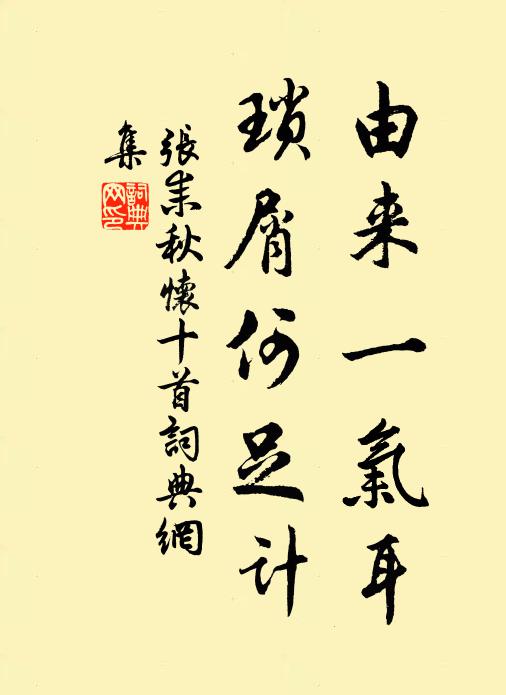 由来一氣耳
瑣屑何足计
張耒秋懷十首詞典網
集
詞典
网印